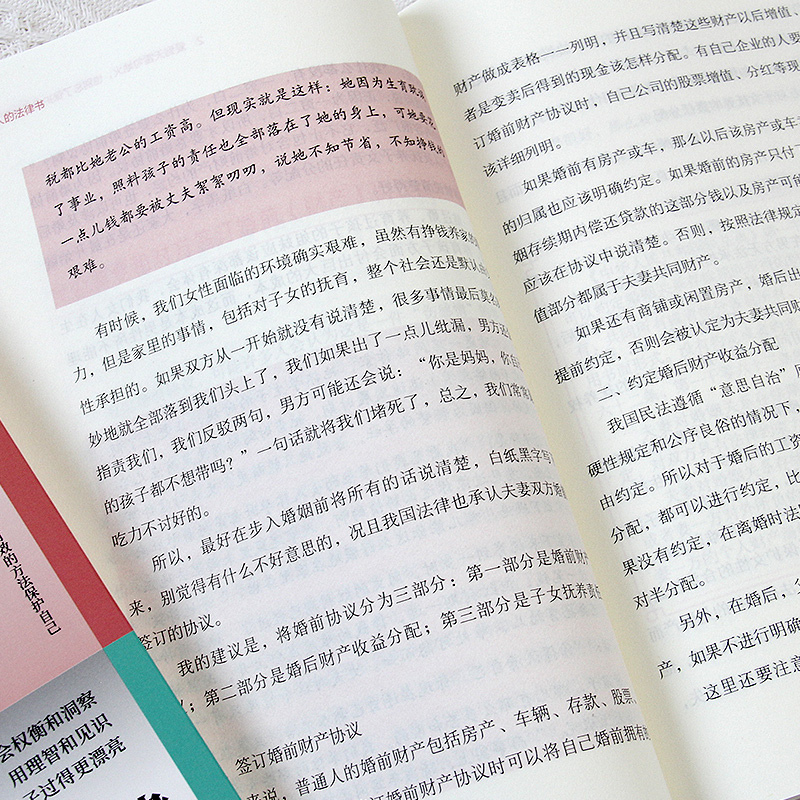 人的法律书
税都比她老公的工资高。但现实就是这样：她因为生育耽
了事业，照料孩子的责任也全部落在了她的身上，可她要花
一点儿钱都要被丈夫絮絮叨叨，说她不知节省，不知挣钱的
艰难。
有时候，我们女性面临的环境确实艰难，虽然有挣钱养家的
力，但是家里的事情，包括对子女的抚育，整个社会还是默认由
性承担的。如果双方从一开始就没有说清楚，很多事情最后莫名
妙地就全部落到我们头上了，我们如果出了一点儿纰漏，男方还
指责我们，我们反驳两句，男方可能还会说：“你是妈妈，你自
的孩子都不想带吗？”一句话就将我们堵死了，总之，我们常常
吃力不讨好的。
所以，最好在步入婚姻前将所有的话说清楚，白纸黑字写
来，别觉得有什么不好意思的，况且我国法律也承认夫妻双方婚前
签订的协议。
我的建议是，将婚前协议分为三部分：第一部分是婚前财
；第二部分是婚后财产收益分配；第三部分是子女抚养责任
签订婚前财产协议
来说，普通人的婚前财产包括房产、车辆、存款、股票、
订婚前财产协议时可以将自己婚前拥有
财产做成表格一一列明，并且写清楚这些财产以后增值、
者是变卖后得到的现金该怎样分配。有自己企业的人要
订婚前财产协议时，自己公司的股票增值、分红等现
该详细列明。
如果婚前有房产或车，那么以后该房产或车
的归属也应该明确约定。如果婚前的房产只付了
姻存续期内偿还贷款的这部分钱以及房产可能
应该在协议中说清楚。否则，按照法律规定
值部分都属于夫妻共同财产。
如果还有商铺或闲置房产，婚后出
提前约定，否则会被认定为夫妻共同财
二、约定婚后财产收益分配
我国民法遵循“意思自治”原
硬性规定和公序良俗的情况下，
由约定。所以对于婚后的工资
分配，都可以进行约定，比
果没有约定，在离婚时法
对半分配。
另外，在婚后，
产，如果不进行明确
这里还要注意
效的方法保护自己
会权衡和洞察
用理智和见识
子过得更漂亮